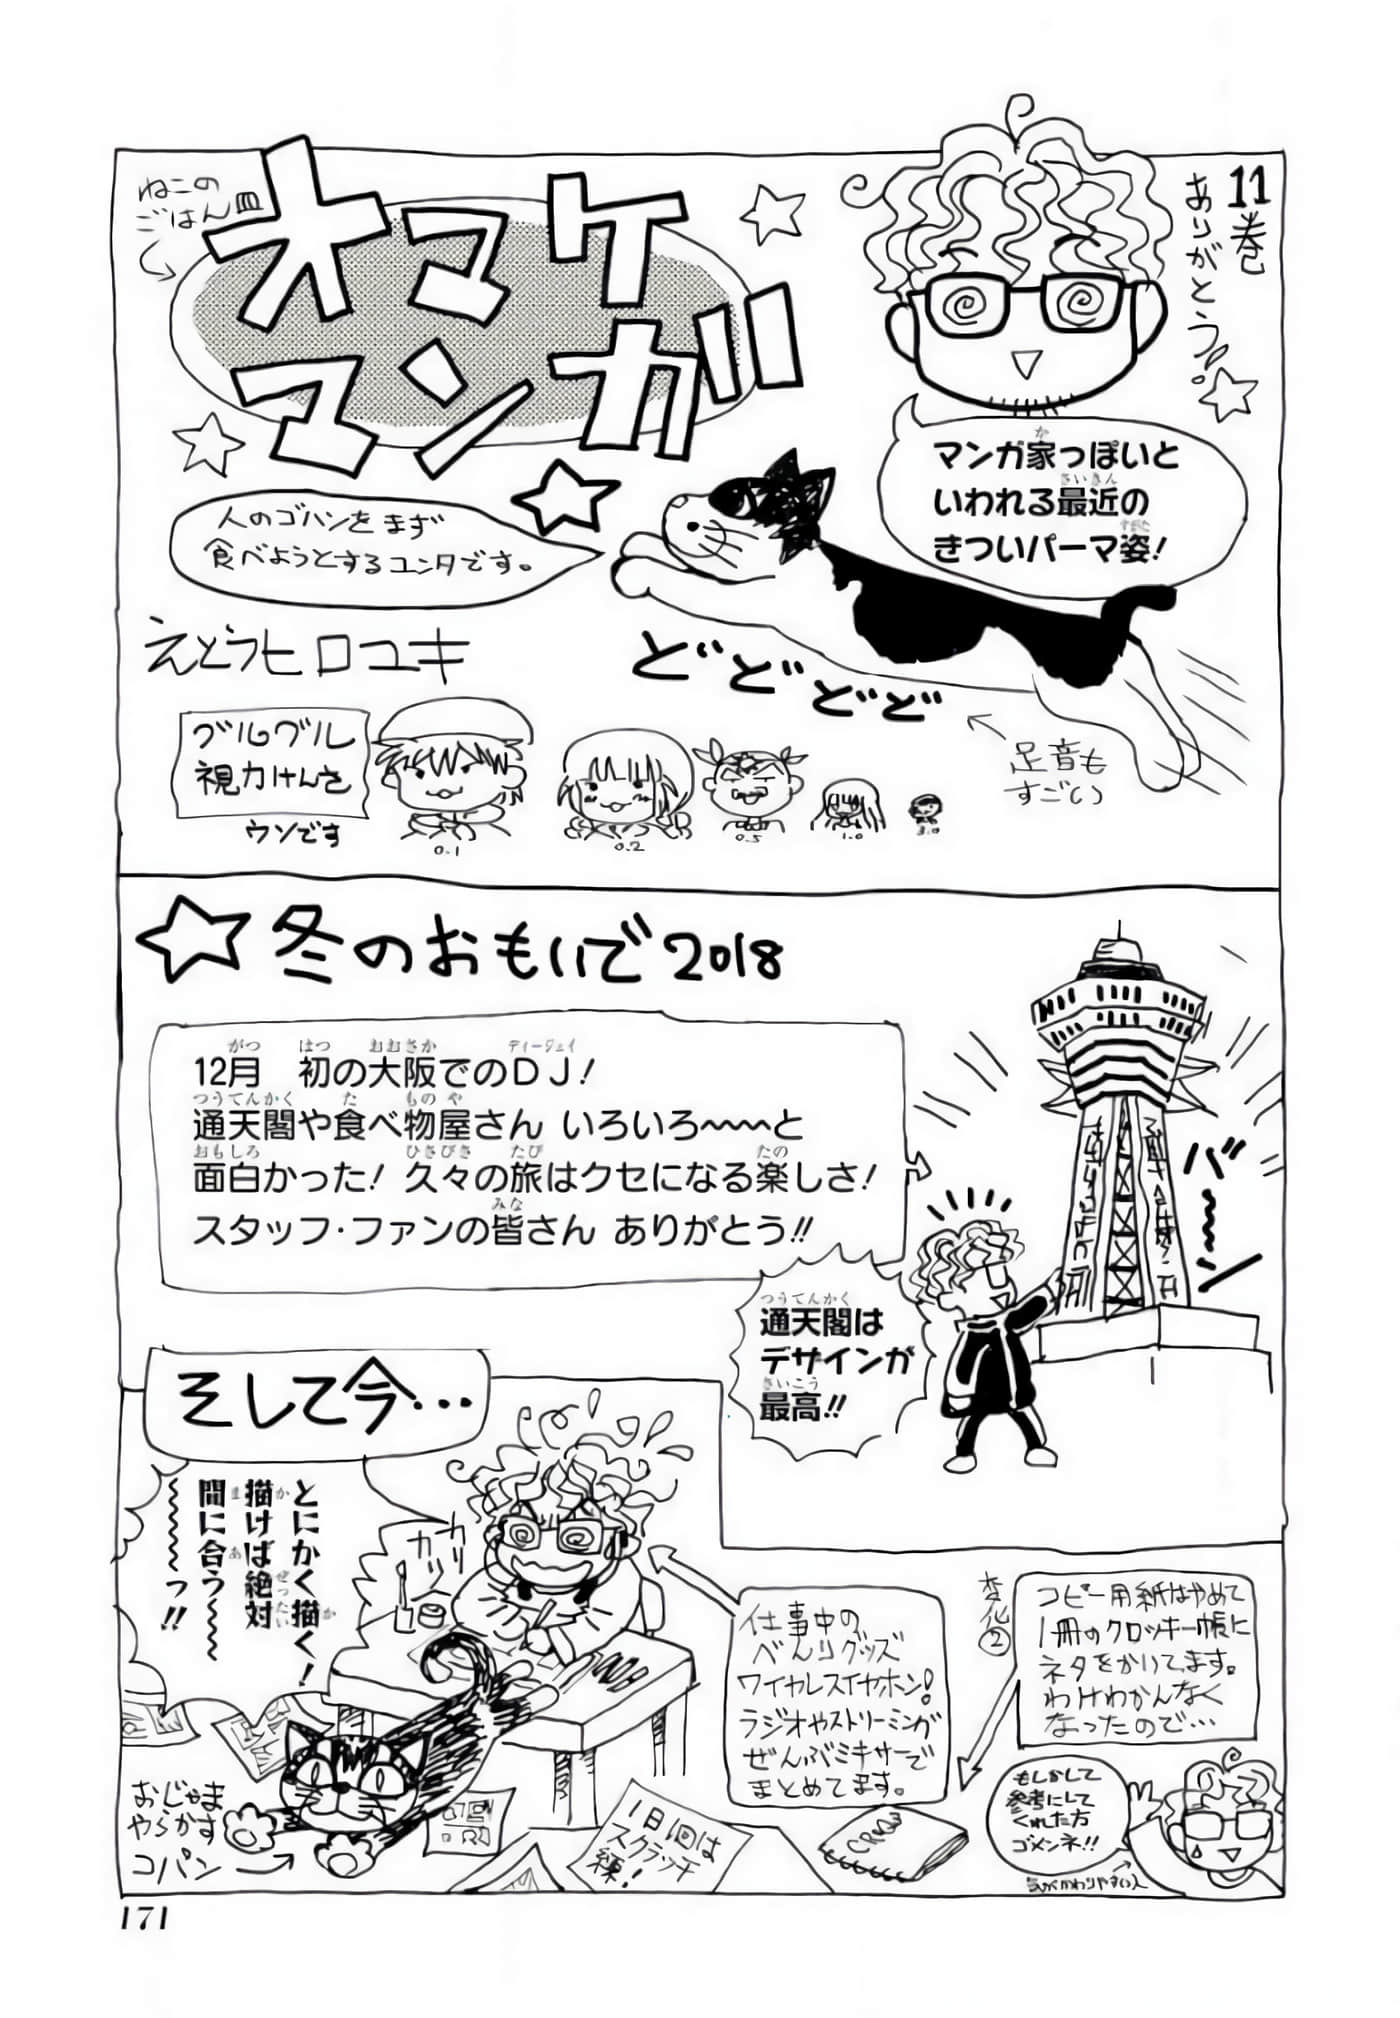 11巻
ありがとう!
オマケ
マンガ
ねこの
ごはん皿
マンガ家っぽいと
いわれる最近の
きついパーマ姿!
人のゴハンをまず
食べようとするユンタです。
えとうヒロユキ
ど゛ど゛ど゛ど゛
足音も
すごい
グルグル
視力けんさ
ウソです
0.1
0.2
0.5
1.0
3.0
☆冬のおもいで2018
12月 初の大阪でのDJ!
通天閣や食べ物屋さん いろいろ〜〜〜と
面白かった! 久々の旅はクセになる楽しさ!
スタッフ・ファンの皆さん ありがとう!!
バーン
通天閣は
デザインが
最高!!
そして今…
とにかく描く!
描けば絶対
間に合う〜〜
〜〜〜〜っ!!
カリ
カリ
仕事中の
べんりグッズ
ワイヤレスイヤホン!
ラジオやストリーミングが
ぜんぶミキサーで
まとめてます。
変化②
コピー用紙はやめて
1冊のクロッキー帳に
ネタをかいてます。
わけわかんなく
なったので…
もしかして
参考にして
くれた方
ゴメンネ!!
気がかわりやすい人
おじゃま
やらかす
コパン
1日1回は
スクラッチ
練!
171